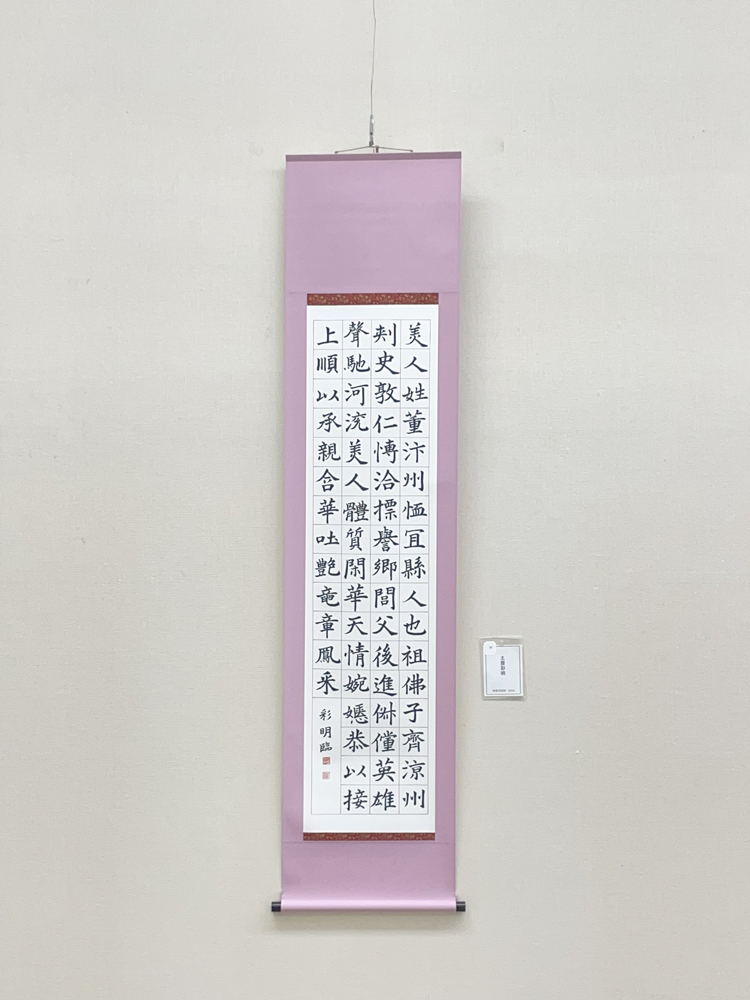 美人姓董汴州恤冝縣人也祖佛子齊涼州
刺史敦仁博洽摽譽鄉閭父後進俶儻英雄
聲馳河兗美人體質閑華天情婉嫕恭以接
上順以承親含華吐艷竜章鳳采
彩明臨